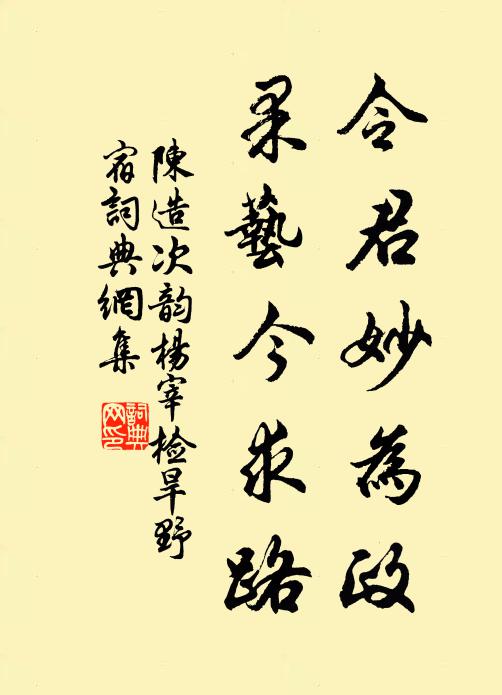 令君妙為政
果藝今求路
陳造次韵楊宰檢旱野
宿詞典網集
詞典
网印